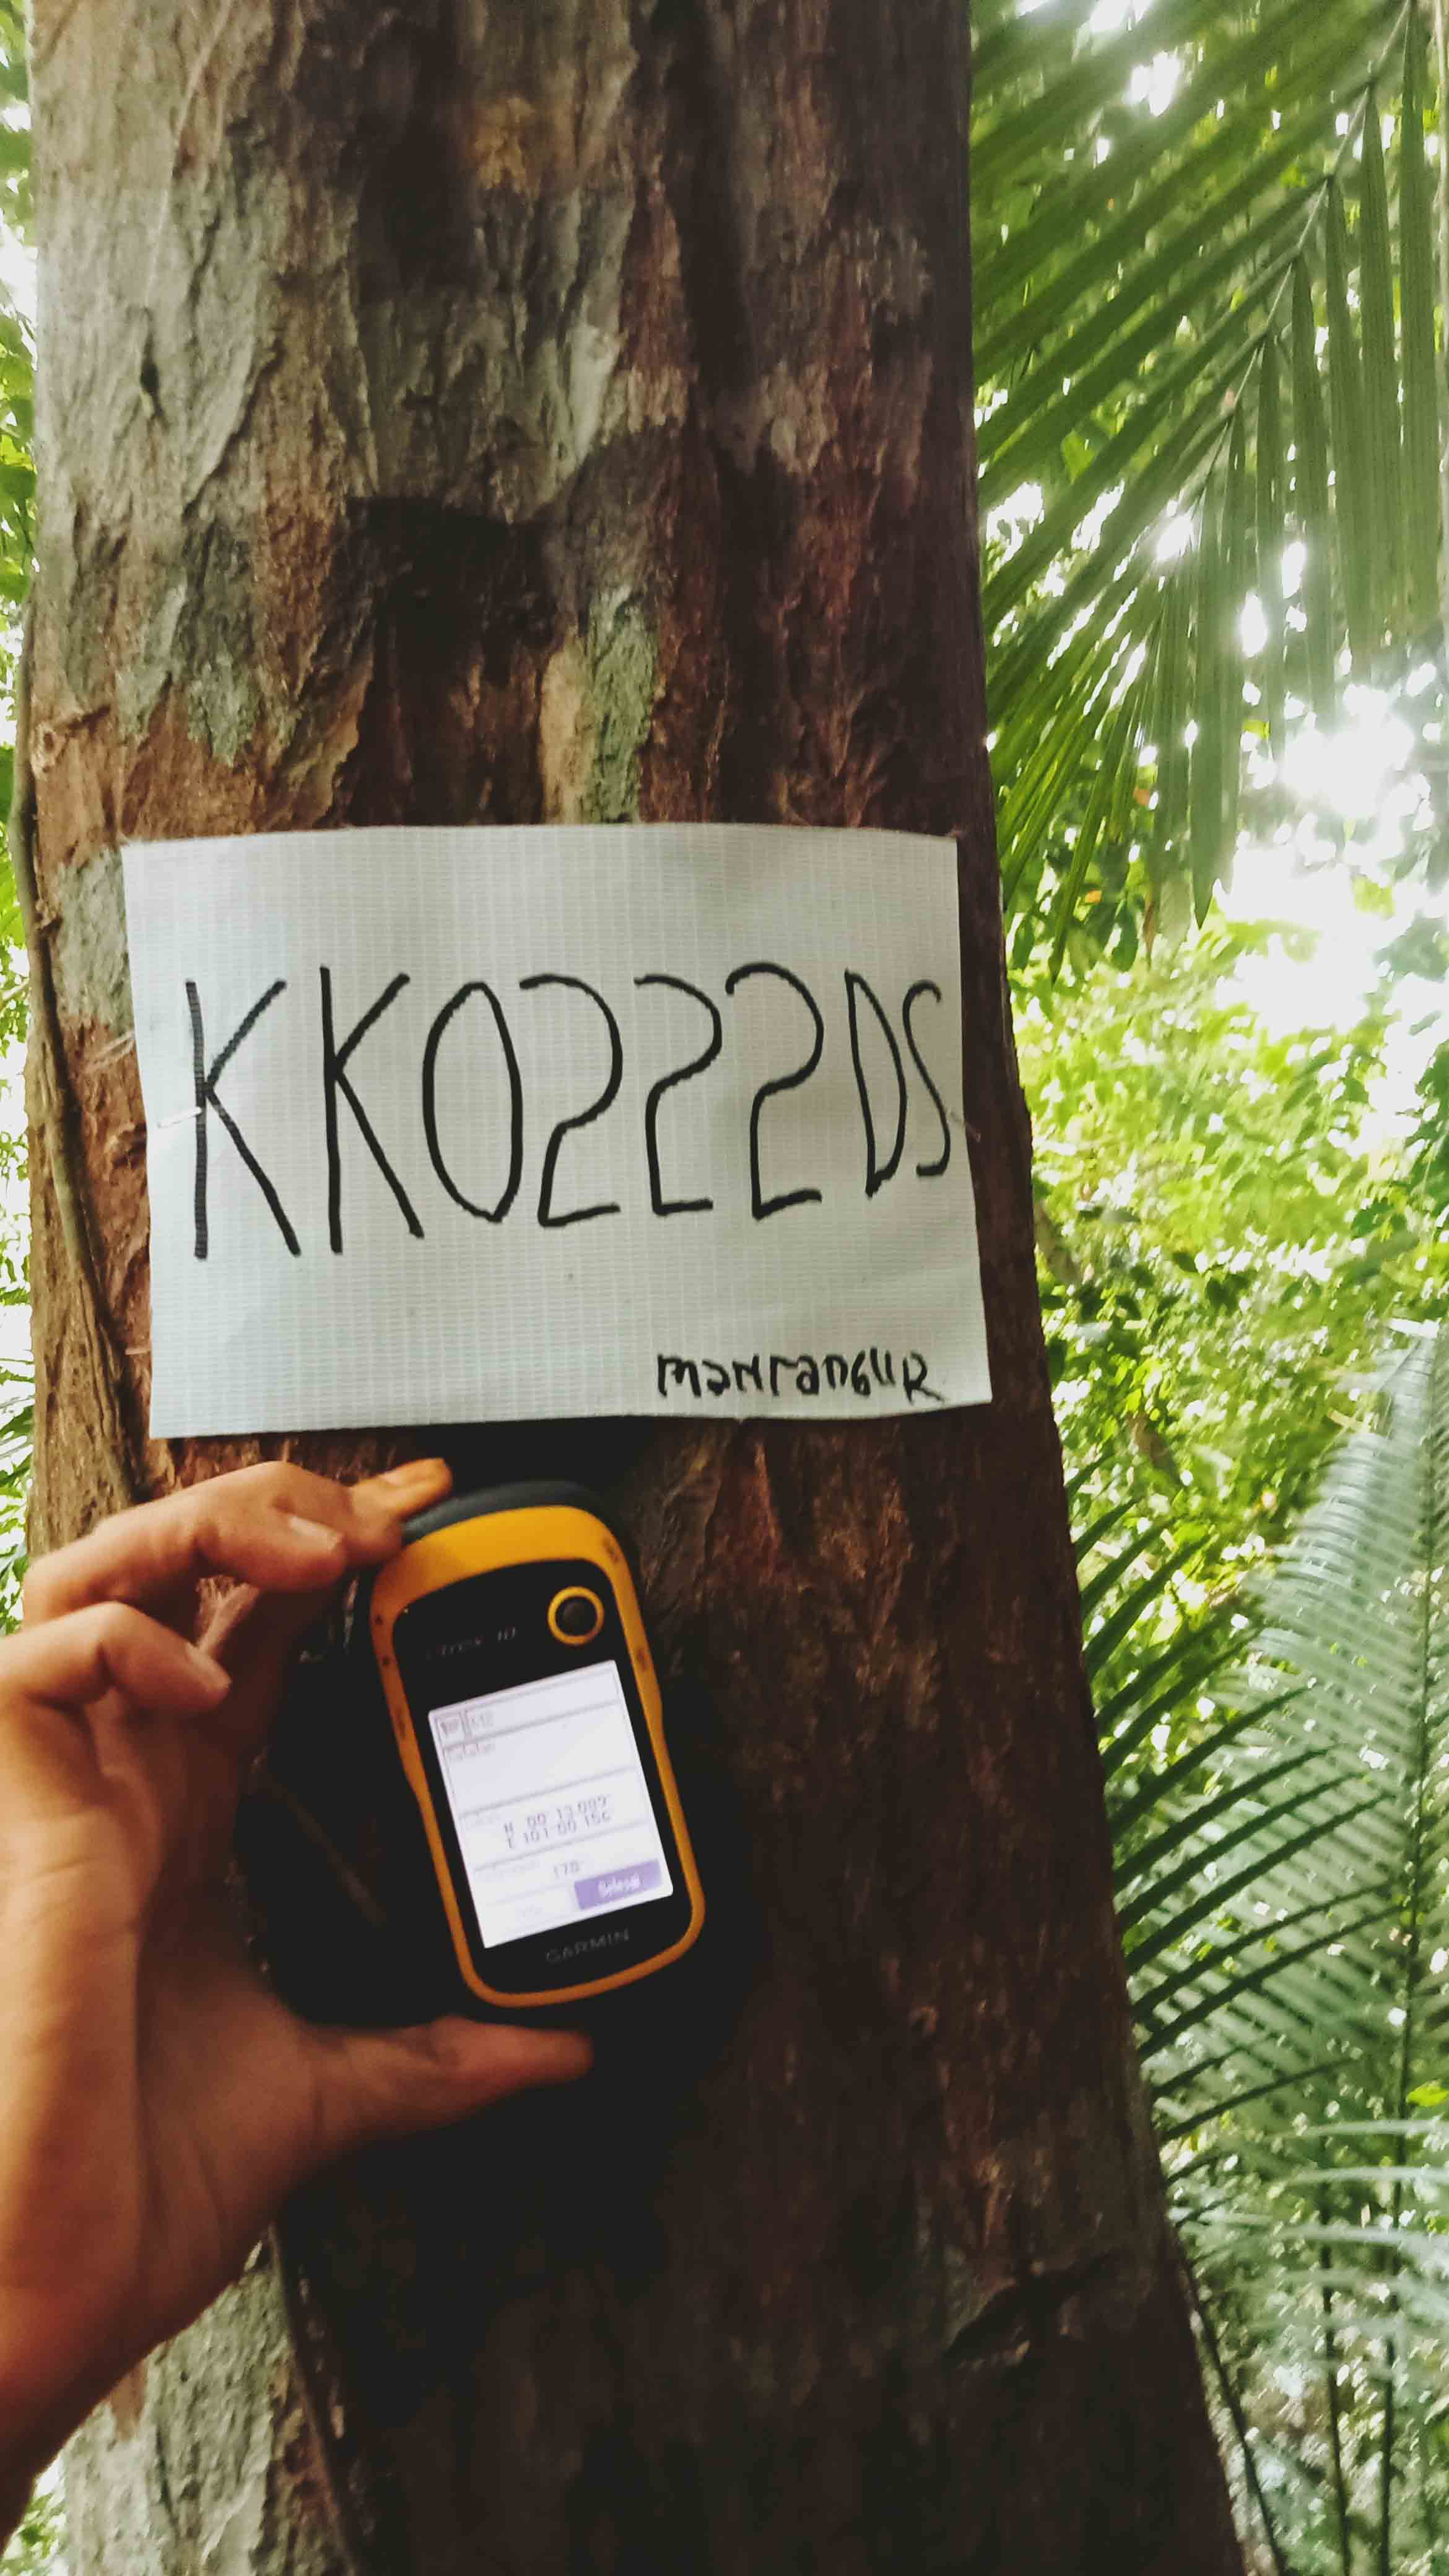 KK0222DS
manrangur
etrex 10
N 00° 13.092'
E 101° 00.156'
Selesai
GARMIN